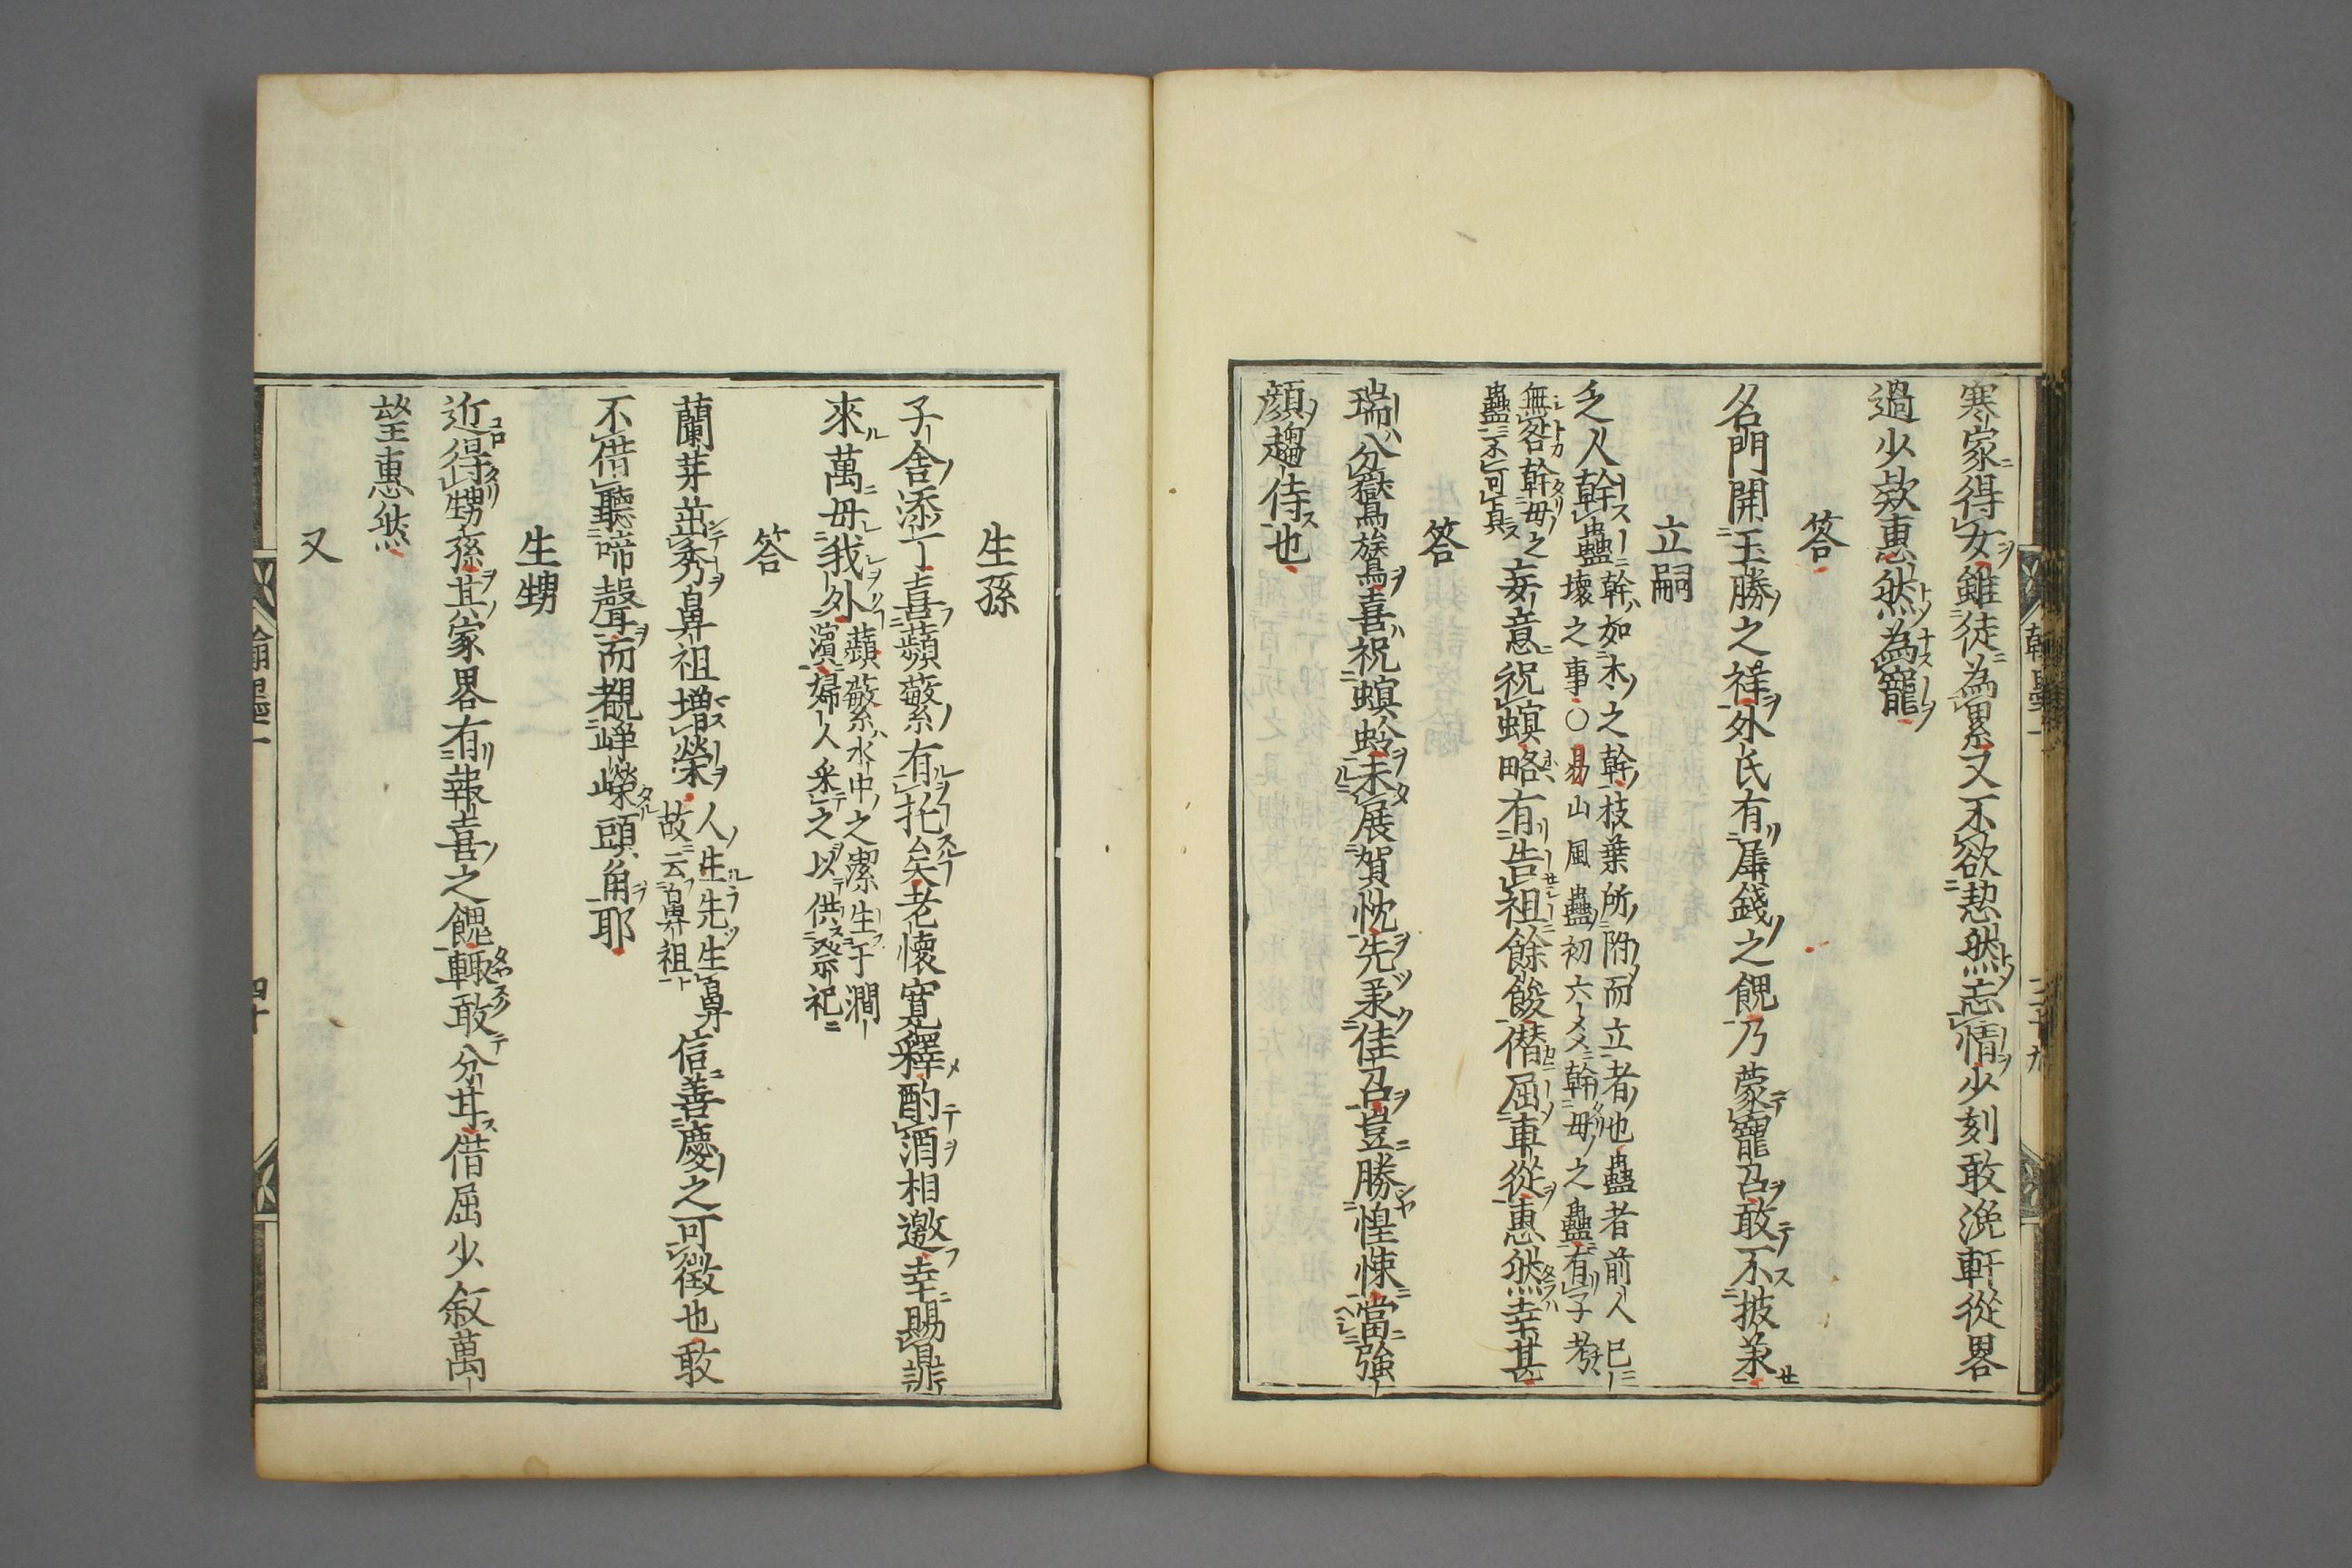 寒家得女雖徒為累又不欲恝然忘情少刻敢浼軒從畧
過少欵惠然為寵
答
名門開玉勝之祥外氏有犀錢之餽乃蒙寵召敢不披兼
立嗣
乏人幹蠱
幹如木之幹枝葉所附而立者也蠱者前人已
壞之事〇易山風蠱初六爻幹母之蠱有子考
無咎幹母之
蠱不可貞
妄意祝螟略有告祖餘餕僭屈車從惠然幸甚
答
瑞分鸑鷟喜祝螟蛉未展賀忱先承佳召豈勝惶悚當強
顔趨侍也
生孫
子舍添丁喜蘋蘩有托矣老懷寬釋酌酒相邀幸賜
來萬毋我外
蘋蘩水中之潔生于澗
濱婦人采之以供祭祀
答
蘭芽茁秀鼻祖增榮
人生先生鼻
故云鼻祖
信善慶之可徵也敢
不借聽啼聲而覩崢嶸頭角耶
生甥
近得甥孫其家畧有報喜之餽輒敢分甘借屈少叙萬
望惠然
又
翰墨一
四十